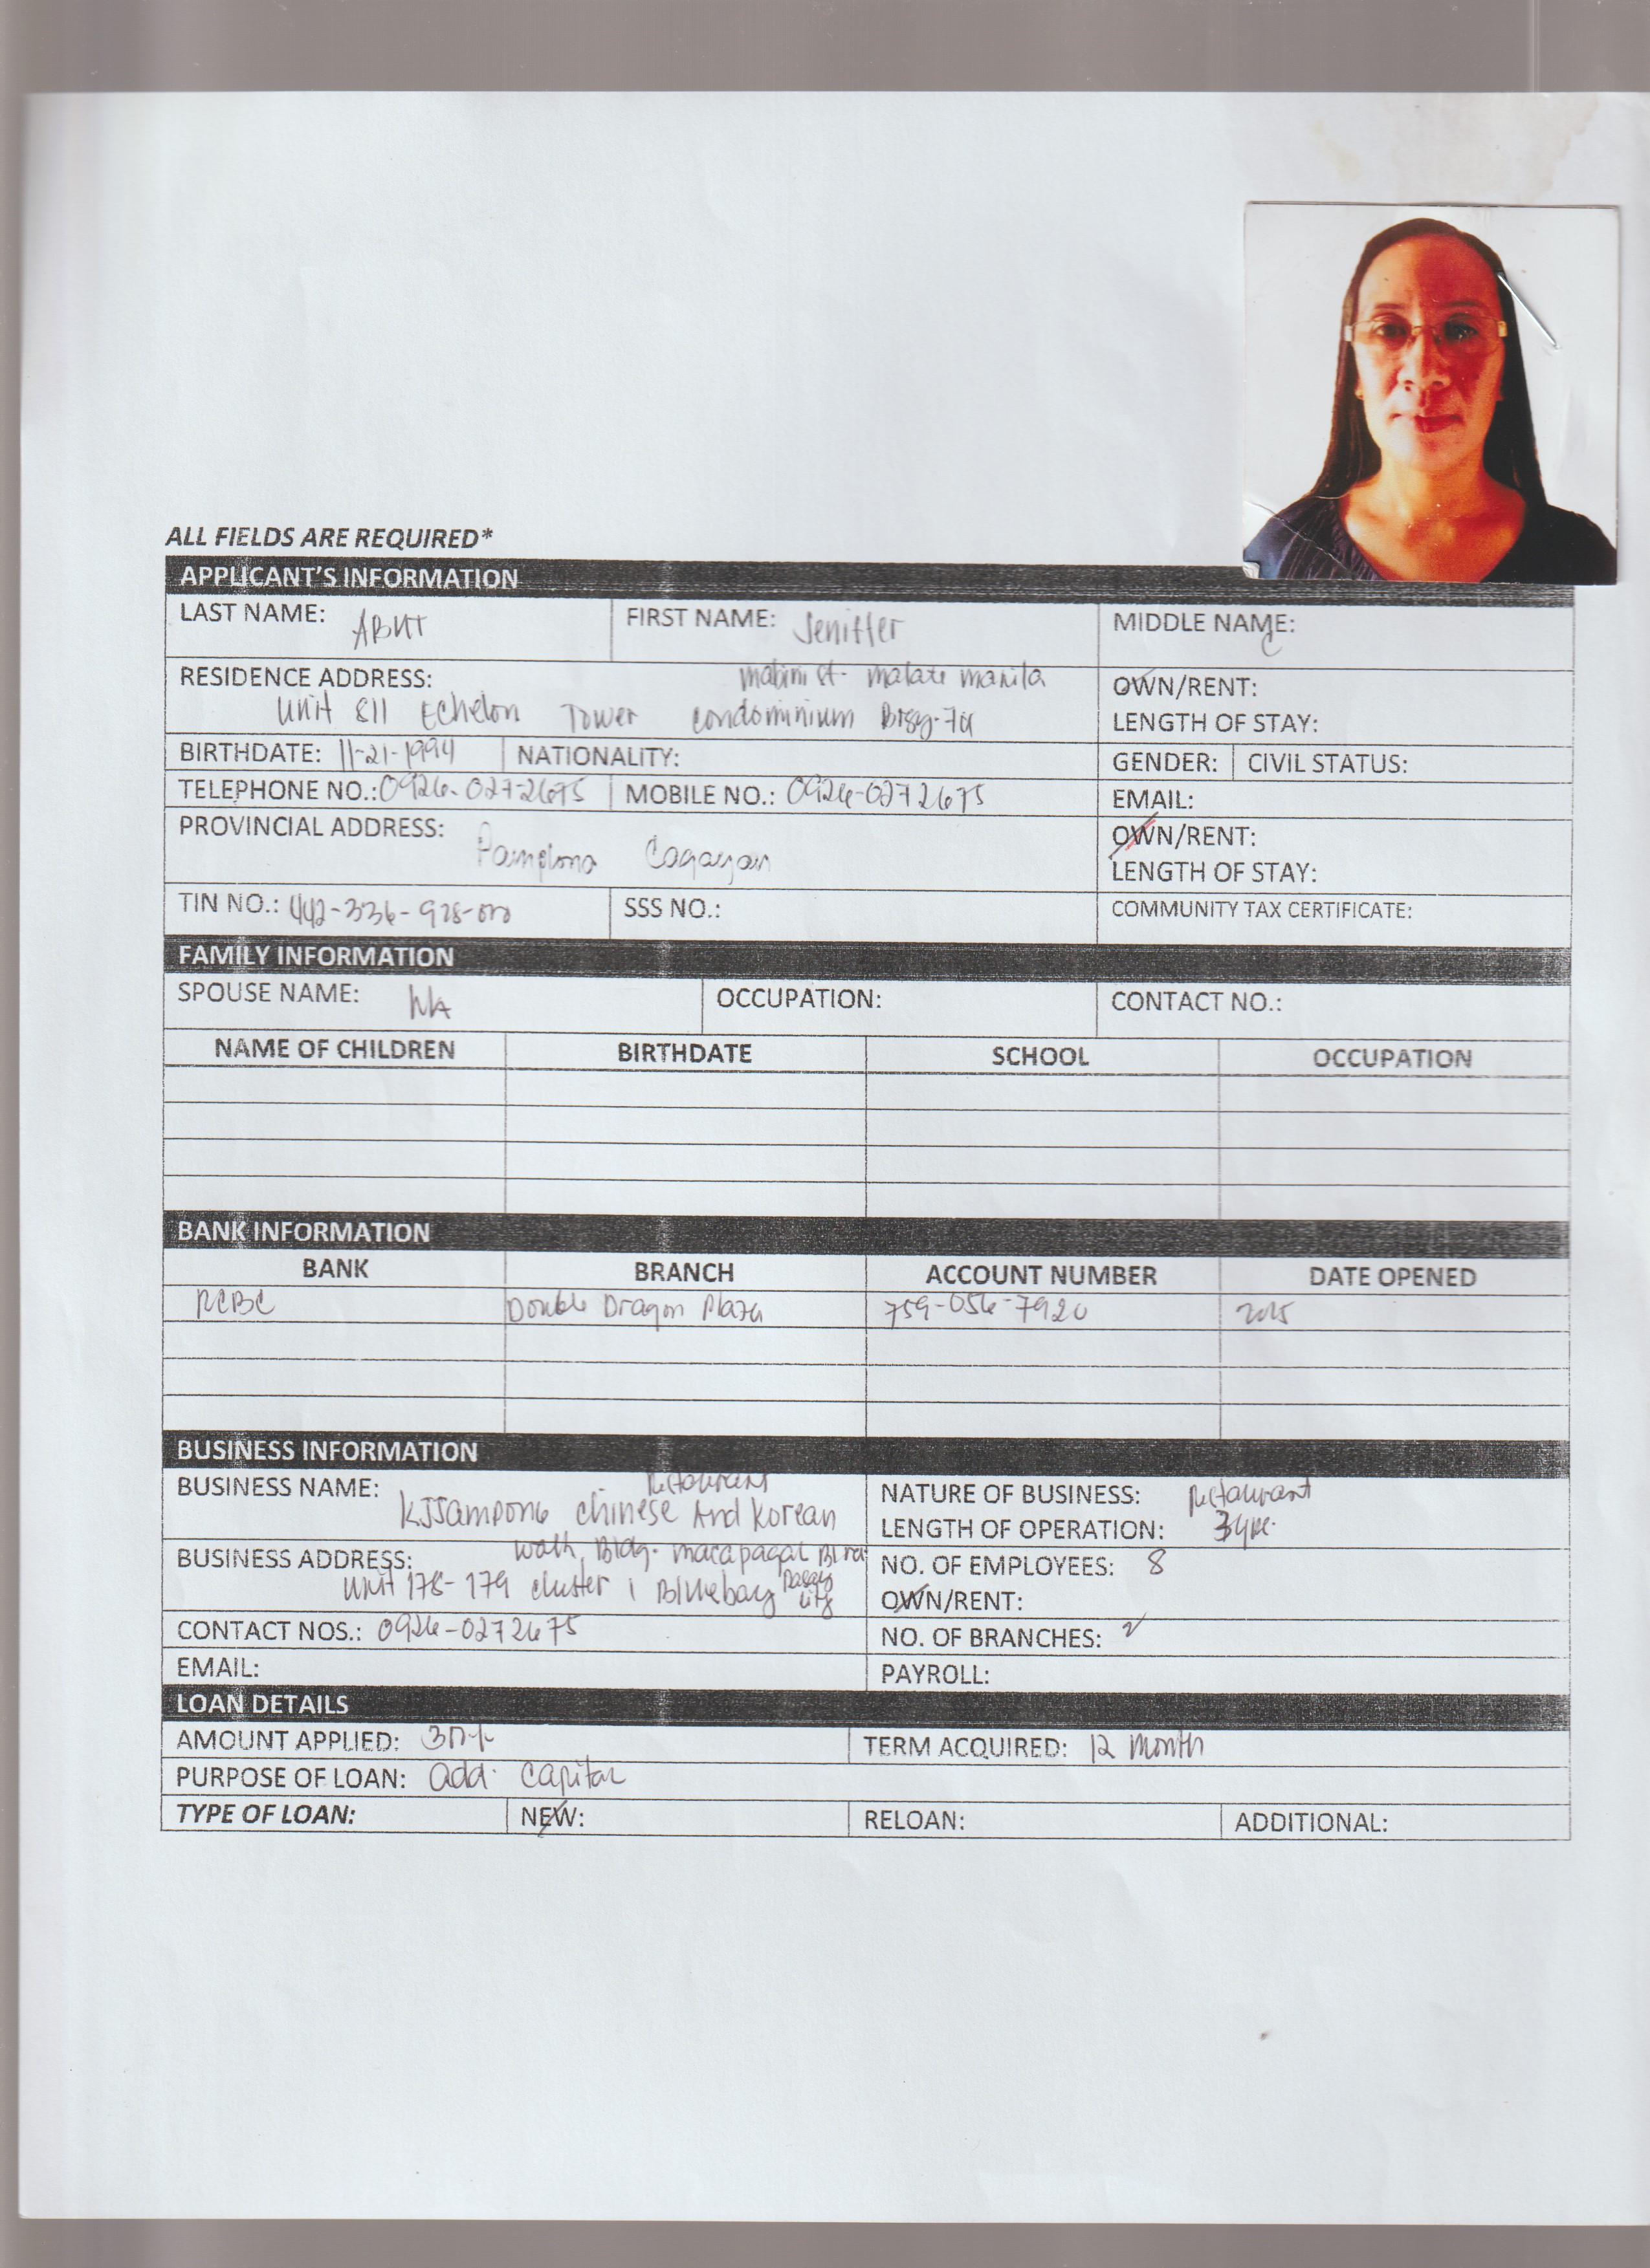 ALL FIELDS ARE REQUIRED*
APPLICANT'S INFORMATION
LAST NAME: FIRST NAME: Jeniffer MIDDLE NAME: C
RESIDENCE ADDRESS: mabini st. malate manila OWN/RENT:
Unit 811 Echelon Tower condominium LENGTH OF STAY:
BIRTHDATE: 11-21-1994 NATIONALITY: GENDER: CIVIL STATUS:
TELEPHONE NO.: 0926-027-2675 MOBILE NO.: 0926-0272675 EMAIL:
PROVINCIAL ADDRESS: Pamplona Cagayan OWN/RENT:
LENGTH OF STAY:
TIN NO.: SSS NO.: COMMUNITY TAX CERTIFICATE:
FAMILY INFORMATION
SPOUSE NAME: NA OCCUPATION: CONTACT NO.:
NAME OF CHILDREN BIRTHDATE SCHOOL OCCUPATION
BANK INFORMATION
BANK BRANCH ACCOUNT NUMBER DATE OPENED
RCBC Double Dragon Plaza 759-056-7920 2015
BUSINESS INFORMATION
Restaurant
BUSINESS NAME: KJJampong Chinese And Korean NATURE OF BUSINESS: Restaurant
LENGTH OF OPERATION:
BUSINESS ADDRESS: walk Bldg. macapagal Blvd NO. OF EMPLOYEES: 8
Unit 178-179 cluster 1 Bluebay Pasay City OWN/RENT:
CONTACT NOS.: 0926-0272675 NO. OF BRANCHES: 2
EMAIL: PAYROLL:
LOAN DETAILS
AMOUNT APPLIED: TERM ACQUIRED: 12 month
PURPOSE OF LOAN: add. capital
TYPE OF LOAN: NEW: RELOAN: ADDITIONAL: